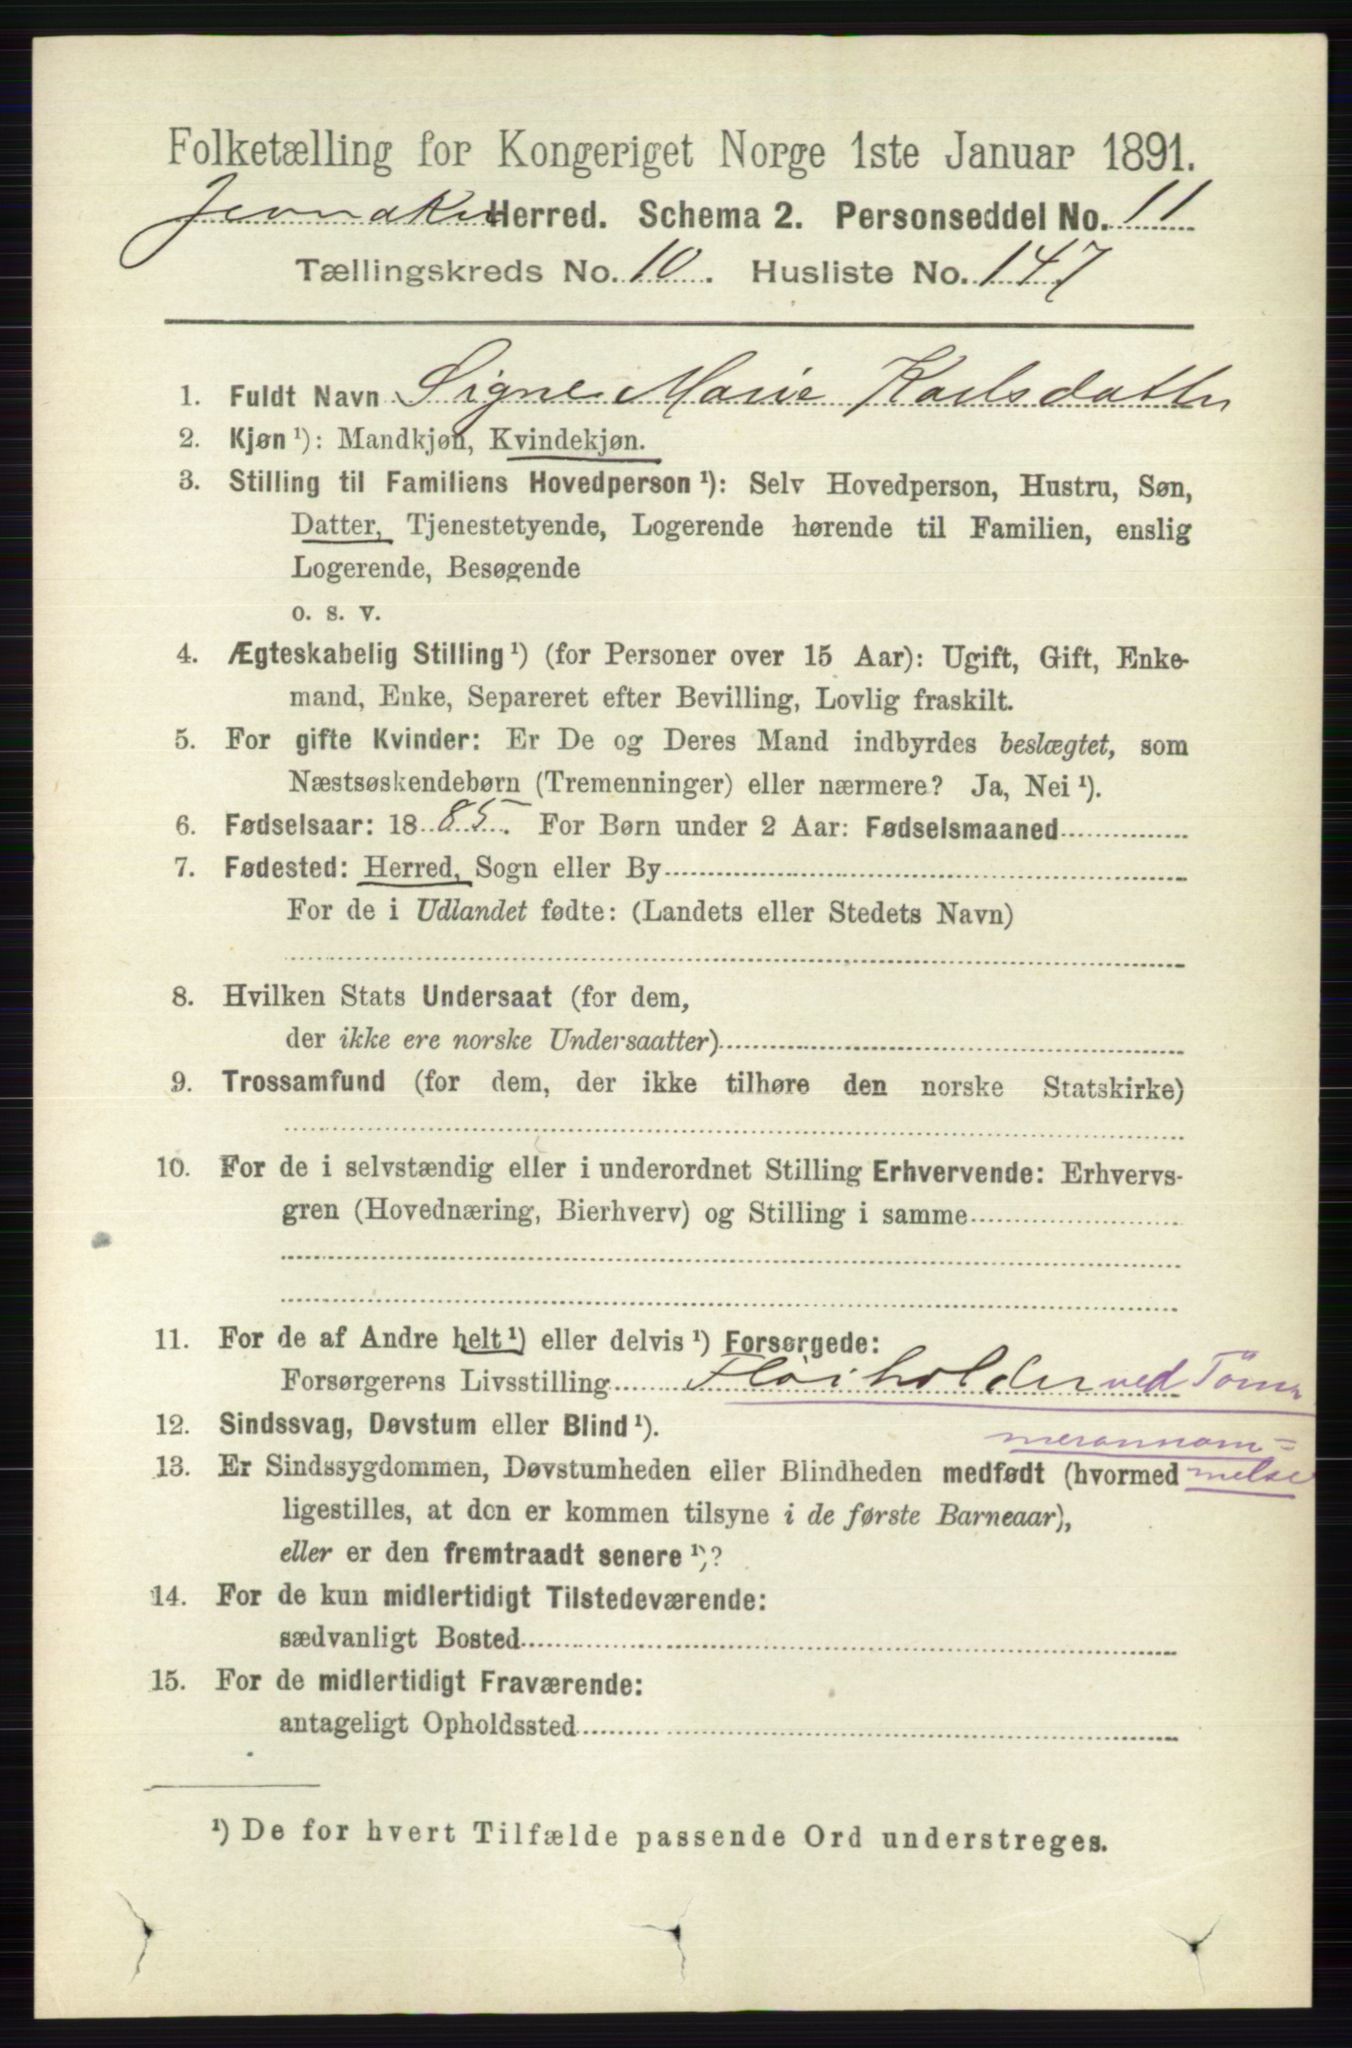 Folketælling for Kongeriget Norge 1ste Januar 1891.
Jevnaker Herred. Schema 2. Personseddel No. 11
Tællingskreds No. 10. Husliste No. 147
1. Fuldt Navn Signe Marie Karlsdatter
2. Kjøn ¹): Mandkjøn, Kvindekjøn.
3. Stilling til Familiens Hovedperson ¹): Selv Hovedperson, Hustru, Søn,
Datter, Tjenestetyende, Logerende hørende til Familien, enslig
Logerende, Besøgende
o. s. v.
4. Ægteskabelig Stilling ¹) (for Personer over 15 Aar): Ugift, Gift, Enke-
mand, Enke, Separeret efter Bevilling, Lovlig fraskilt.
5. For gifte Kvinder: Er De og Deres Mand indbyrdes beslægtet, som
Næstsøskendebørn (Tremenninger) eller nærmere? Ja, Nei ¹).
6. Fødselsaar: 1885. For Børn under 2 Aar: Fødselsmaaned
7. Fødested: Herred, Sogn eller By
For de i Udlandet fødte: (Landets eller Stedets Navn)
8. Hvilken Stats Undersaat (for dem,
der ikke ere norske Undersaatter)
9. Trossamfund (for dem, der ikke tilhøre den norske Statskirke)
10. For de i selvstændig eller i underordnet Stilling Erhvervende: Erhvervs-
gren (Hovednæring, Bierhverv) og Stilling i samme
11. For de af Andre helt ¹) eller delvis ¹) Forsørgede:
Forsørgerens Livsstilling Fløiholder ved Töm
12. Sindssvag, Døvstum eller Blind ¹).
merannam=
13. Er Sindssygdommen, Døvstumheden eller Blindheden medfødt (hvormed melse
ligestilles, at den er kommen tilsyne i de første Barneaar),
eller er den fremtraadt senere ¹)?
14. For de kun midlertidigt Tilstedeværende:
sædvanligt Bosted
15. For de midlertidigt Fraværende:
antageligt Opholdssted
¹) De for hvert Tilfælde passende Ord understreges.